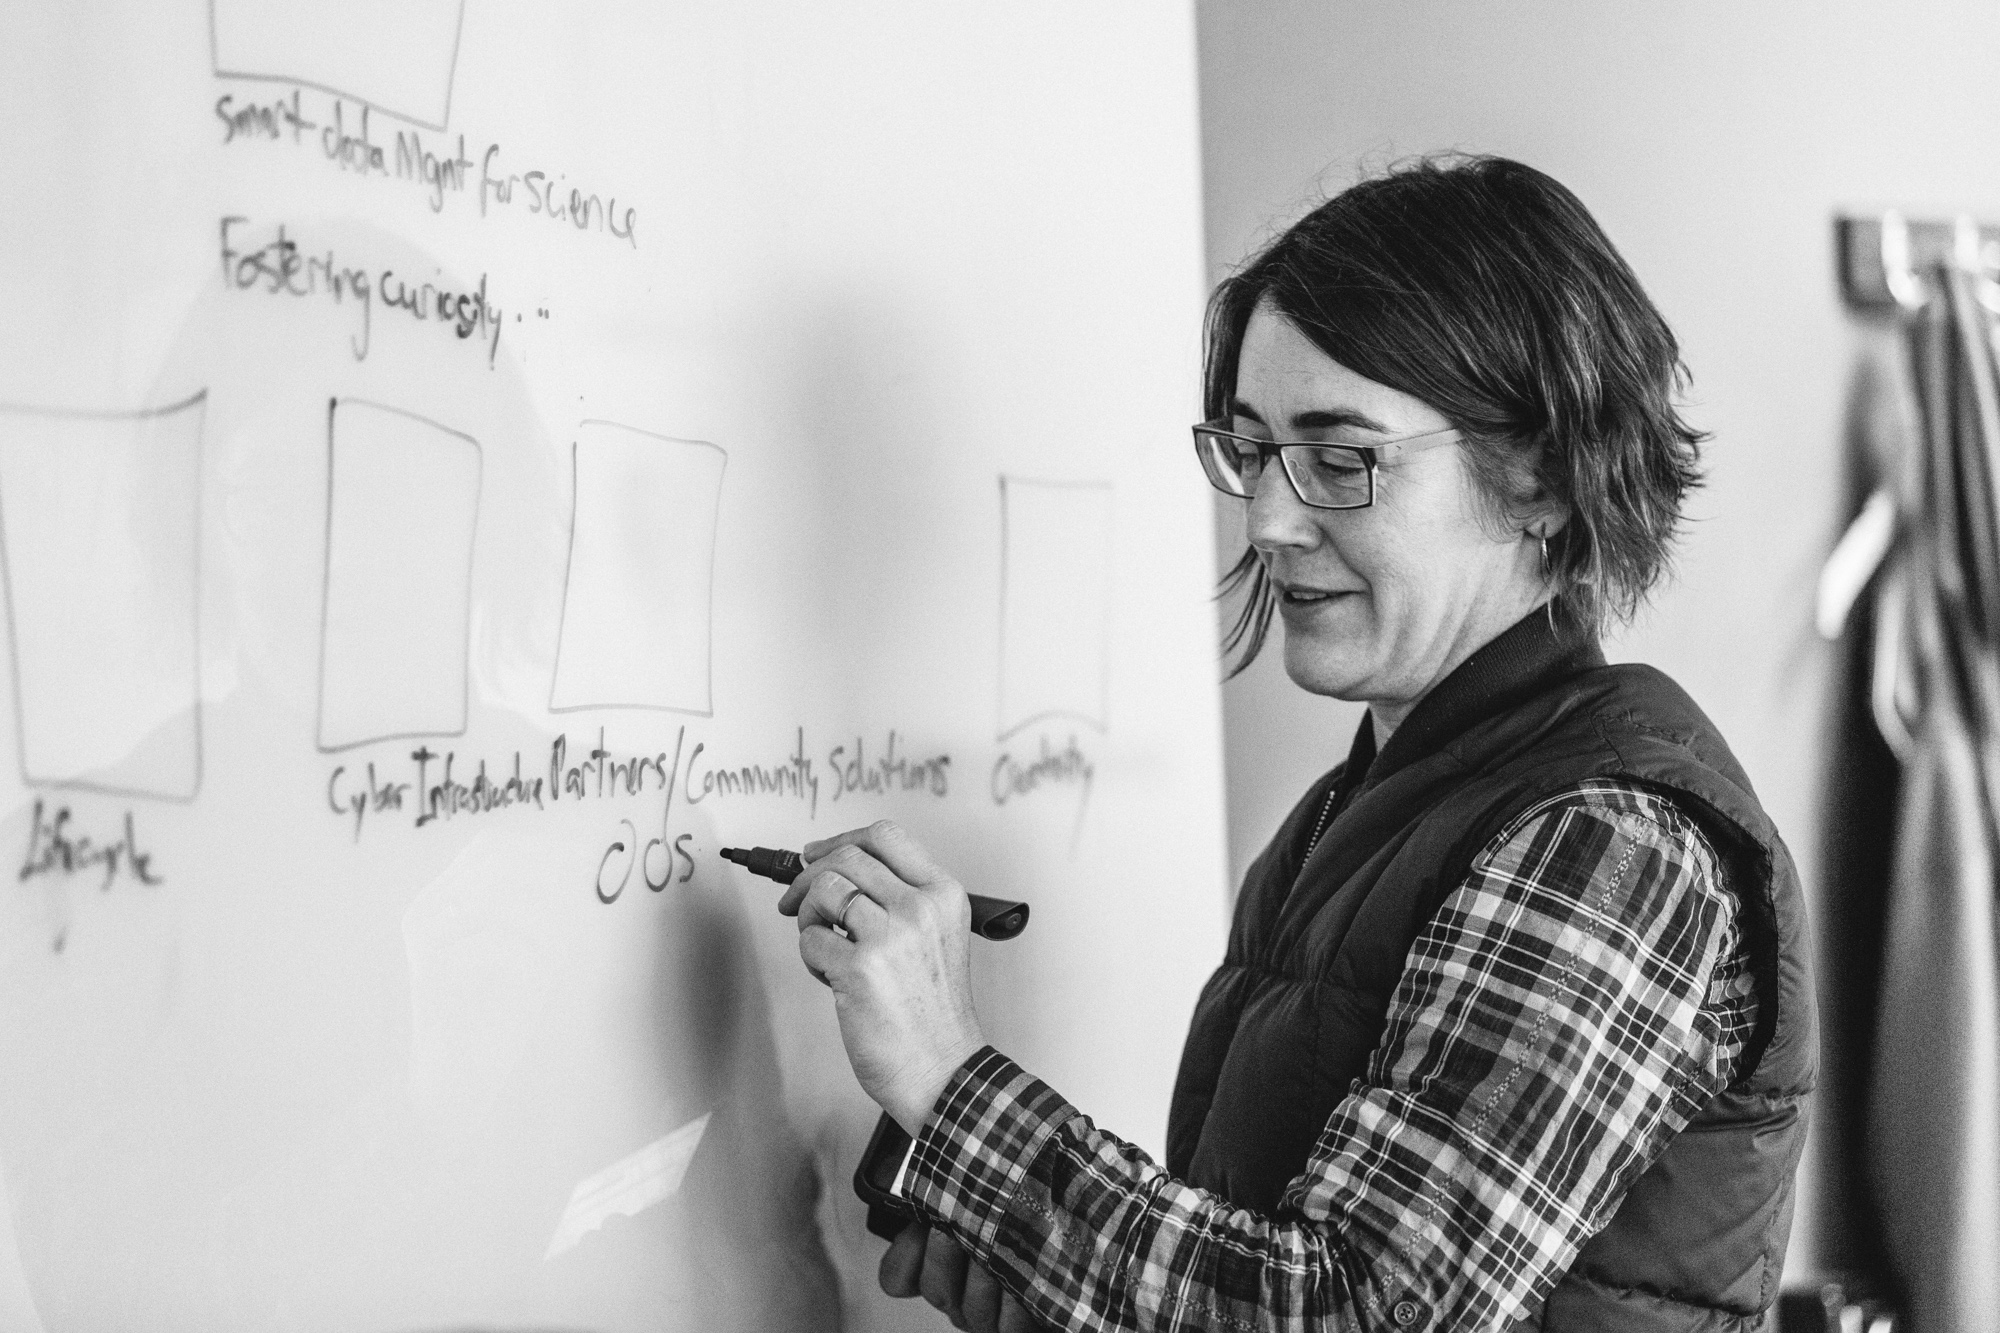 Smart data Mgnt for science
Fostering curiosity...
Cyber Infrastructure Partners/Community Solutions
Creativity
Lifecycle